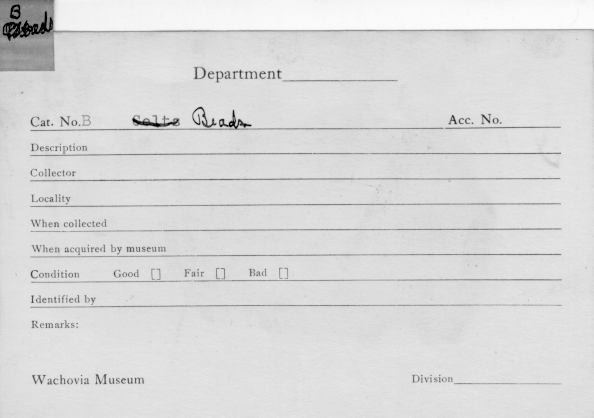 B
Beads
Department
Cat. No. B Celts Beads Acc. No.
Description
Collector
Locality
When collected
When acquired by museum
Condition Good [] Fair [] Bad []
Identified by
Remarks:
Wachovia Museum Division